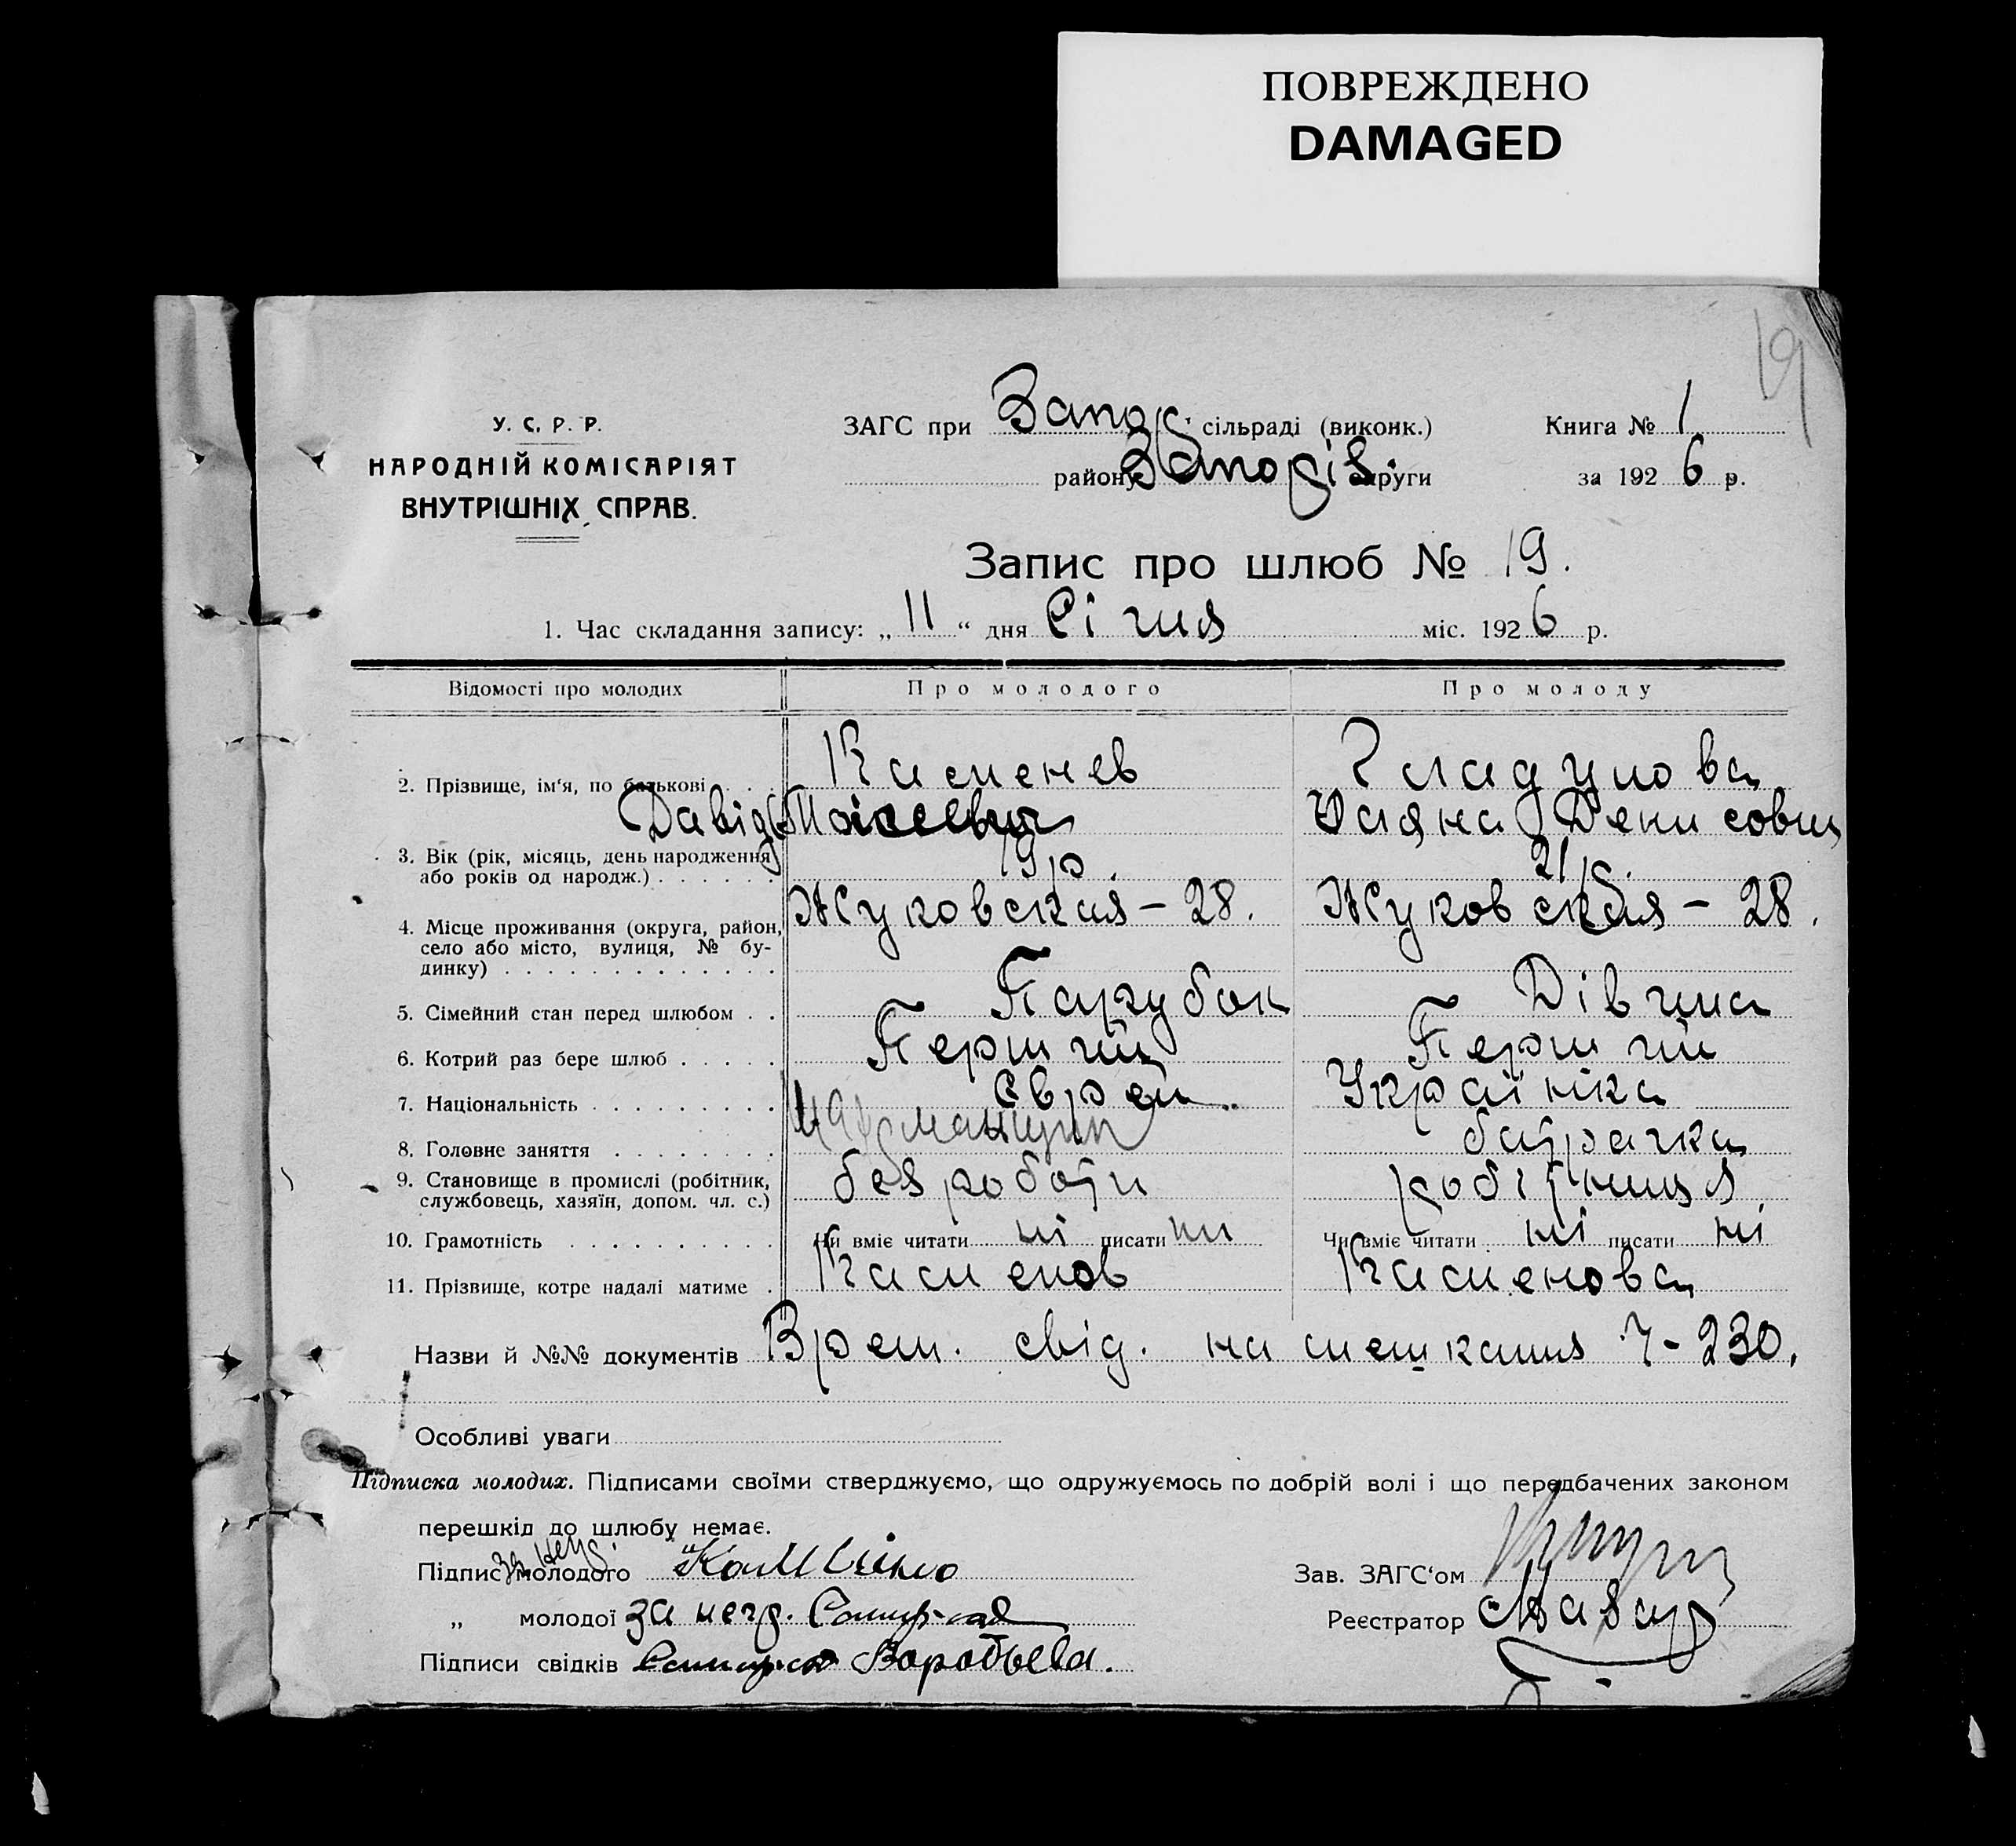 ПОВРЕЖДЕНО
DAMAGED
19
У. С. Р. Р.
НАРОДНІЙ КОМІСАРІЯТ
ВНУТРІШНІХ СПРАВ.
ЗАГС при Запор. сільраді (виконк.)
району Запорів. округи
Книга № 1
за 1926 р.
Запис про шлюб № 19.
1. Час складання запису: „11“ дня Січня міс. 1926 р.
Відомості про молодих Про молодого Про молоду
2. Прізвище, ім‘я, по батькові Каменев Гладунова
Давид Моісеевич Уляна Денисовна
3. Вік (рік, місяць, день народження або років од народж.) 19 р. 21 р.
4. Місце проживання (округа, район, село або місто, вулиця, № будинку) Жуковская – 28. Жуковская – 28.
5. Сімейний стан перед шлюбом Парубок Дівчина
6. Котрий раз бере шлюб Перший Перший
7. Національність Єврей Українка
8. Головне заняття батрачка
9. Становище в промислі (робітник, службовець, хазяїн, допом. чл. с.) без роботи робітниця
10. Грамотність Чи вміє читати ні писати ни Чи вміє читати ні писати ні
11. Прізвище, котре надалі матиме Каменов Каменова
Назви й №№ документів Врем. свід. на мешкання Ч-230.
Особливі уваги
Підписка молодих. Підписами своїми стверджуємо, що одружуємось по добрій волі і що передбачених законом
перешкід до шлюбу немає.
Підпис молодого
Зав. ЗАГС‘ом
„ молодої за негр.
Реєстратор
Підписи свідків Воробьева.